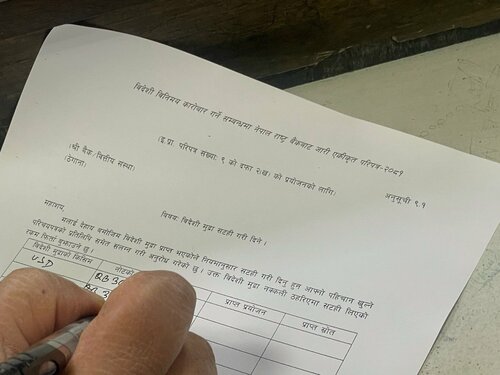 विदेशी विनिमय कारोबार गर्ने सम्बन्धमा नेपाल राष्ट्र बैंकबाट जारी एकीकृत परिपत्र-२०८१
(इ.प्रा. परिपत्र संख्याः ९ को दफा २(ख) को प्रयोजनका लागि)
अनुसूची ९.१
(श्री बैंक/वित्तीय संस्था)
(ठेगाना)
विषयः विदेशी मुद्रा सटही गरी दिने ।
महाशय,
मलाई देहाय बमोजिम विदेशी मुद्रा प्राप्त भएकोले नियमानुसार सटही गरी दिनु हुन आफ्नो परिचान खुल्ने
परिचयपत्रको प्रतिलिपि समेत संलग्न गरी अनुरोध गरेको छु । उक्त विदेशी मुद्रा नक्कली ठहरिएमा सटही लिएको
रकम फिर्ता बुझाउने छु ।
विदेशी मुद्राको किसिम नोटको प्राप्त प्रयोजन प्राप्त स्रोत
USD QB 30